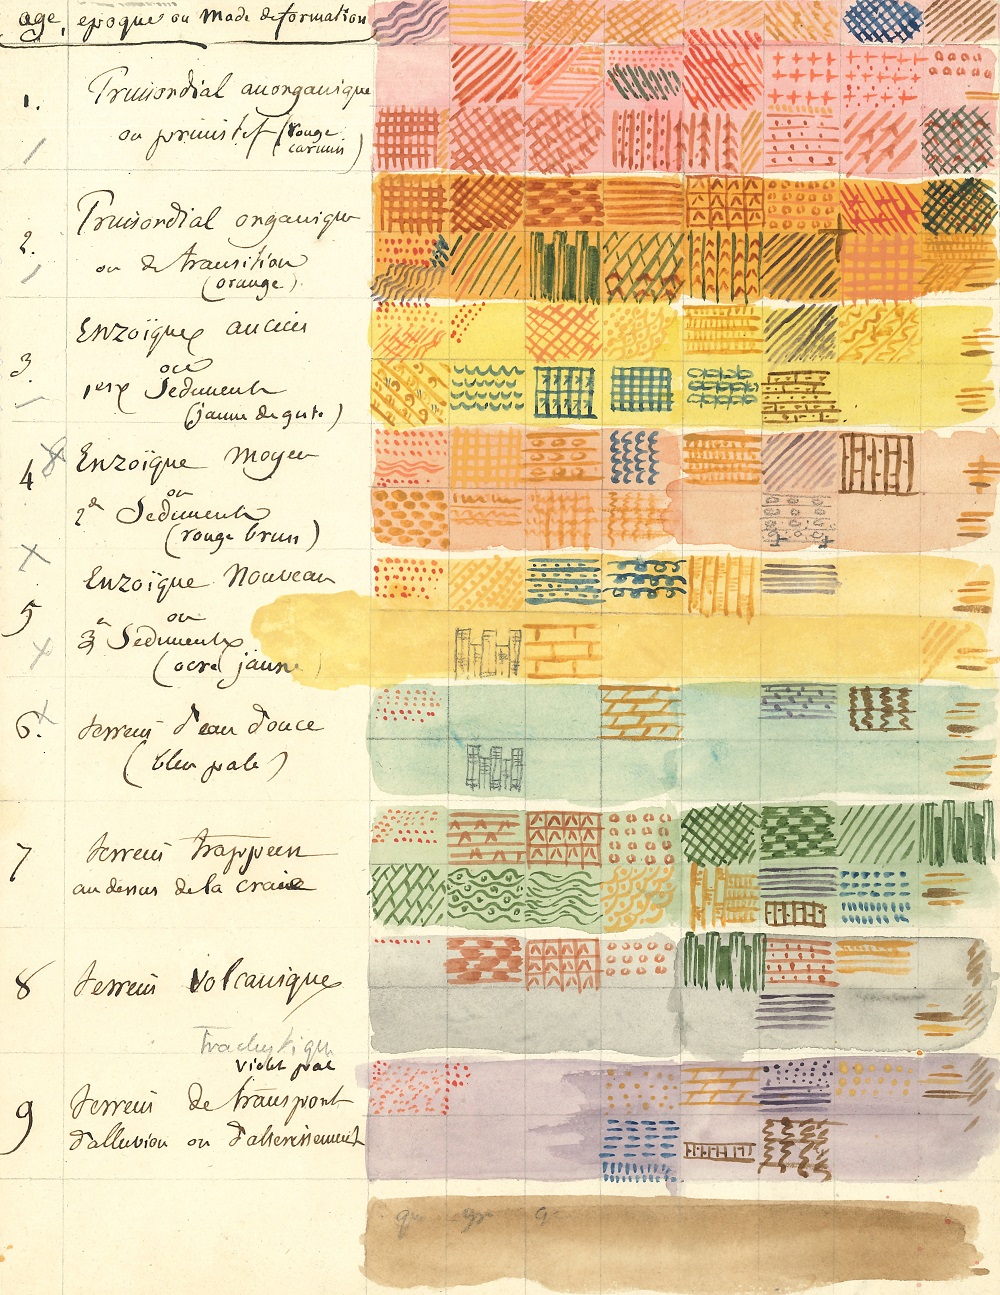 age, epoque ou Mode de formation
1. Primordial anorganique
ou primitif (rouge
carmin)
Primordial organique
2.
ou de transition
(orange)
Enzoïque ancien
3. ou
1er Sediment
(jaune de gute)
4 Enzoïque moyen
ou
2d Sediment
(rouge brun)
Enzoïque Nouveau
5 ou
3e Sediment
(ocre jaune)
6. terrein d'eau douce
(bleu pale)
7 terrein trappeen
au dessus de la craie
8 terrein Volcanique
Trachytique
violet pale
9 terrein de transport
d'alluvion ou d'atterissement